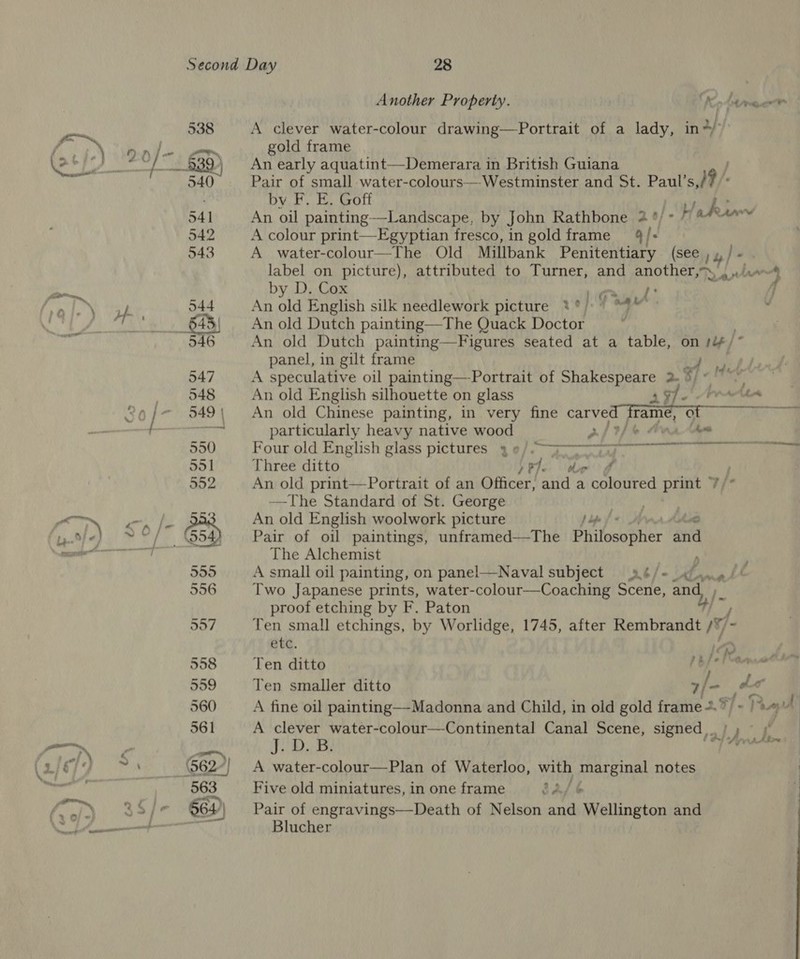 Second Day 28
Another Property.
538 A clever water-colour drawing—Portrait of a lady, in
gold frame
20/- 539 An early aquatint—Demerara in British Guiana
540 Pair of small water-colours—Westminster and St. Paul's,
by F. E. Goff
541 An oil painting—Landscape, by John Rathbone 20/-
542 A colour print—Egyptian fresco, in gold frame 9/-
543 A water-colour—The Old Millbank Penitentiary (see
label on picture), attributed to Turner, and another,
by D. Cox
544 An old English silk needlework picture
545 An old Dutch painting—The Quack Doctor
546 An old Dutch painting—Figures seated at a table, on
panel, in gilt frame
547 A speculative oil painting—Portrait of Shakespeare
548 An old English silhouette on glass
549 An old Chinese painting, in very fine carved frame, of
particularly heavy native wood
550 Four old English glass pictures
551 Three ditto do
552 An old print—Portrait of an Officer, and a coloured print 7/-
—The Standard of St. George
553 An old English woolwork picture
554 Pair of oil paintings, unframed—The Philosopher and
The Alchemist
555 A small oil painting, on panel—Naval subject
556 Two Japanese prints, water-colour—Coaching Scene, and
proof etching by F. Paton
557 Ten small etchings, by Worlidge, 1745, after Rembrandt
etc.
558 Ten ditto
559 Ten smaller ditto 7/- do
560 A fine oil painting—Madonna and Child, in old gold frame
561 A clever water-colour—Continental Canal Scene, signed
J. D. B.
562 A water-colour—Plan of Waterloo, with marginal notes
563 Five old miniatures, in one frame
35/- 564 Pair of engravings—Death of Nelson and Wellington and
Blucher